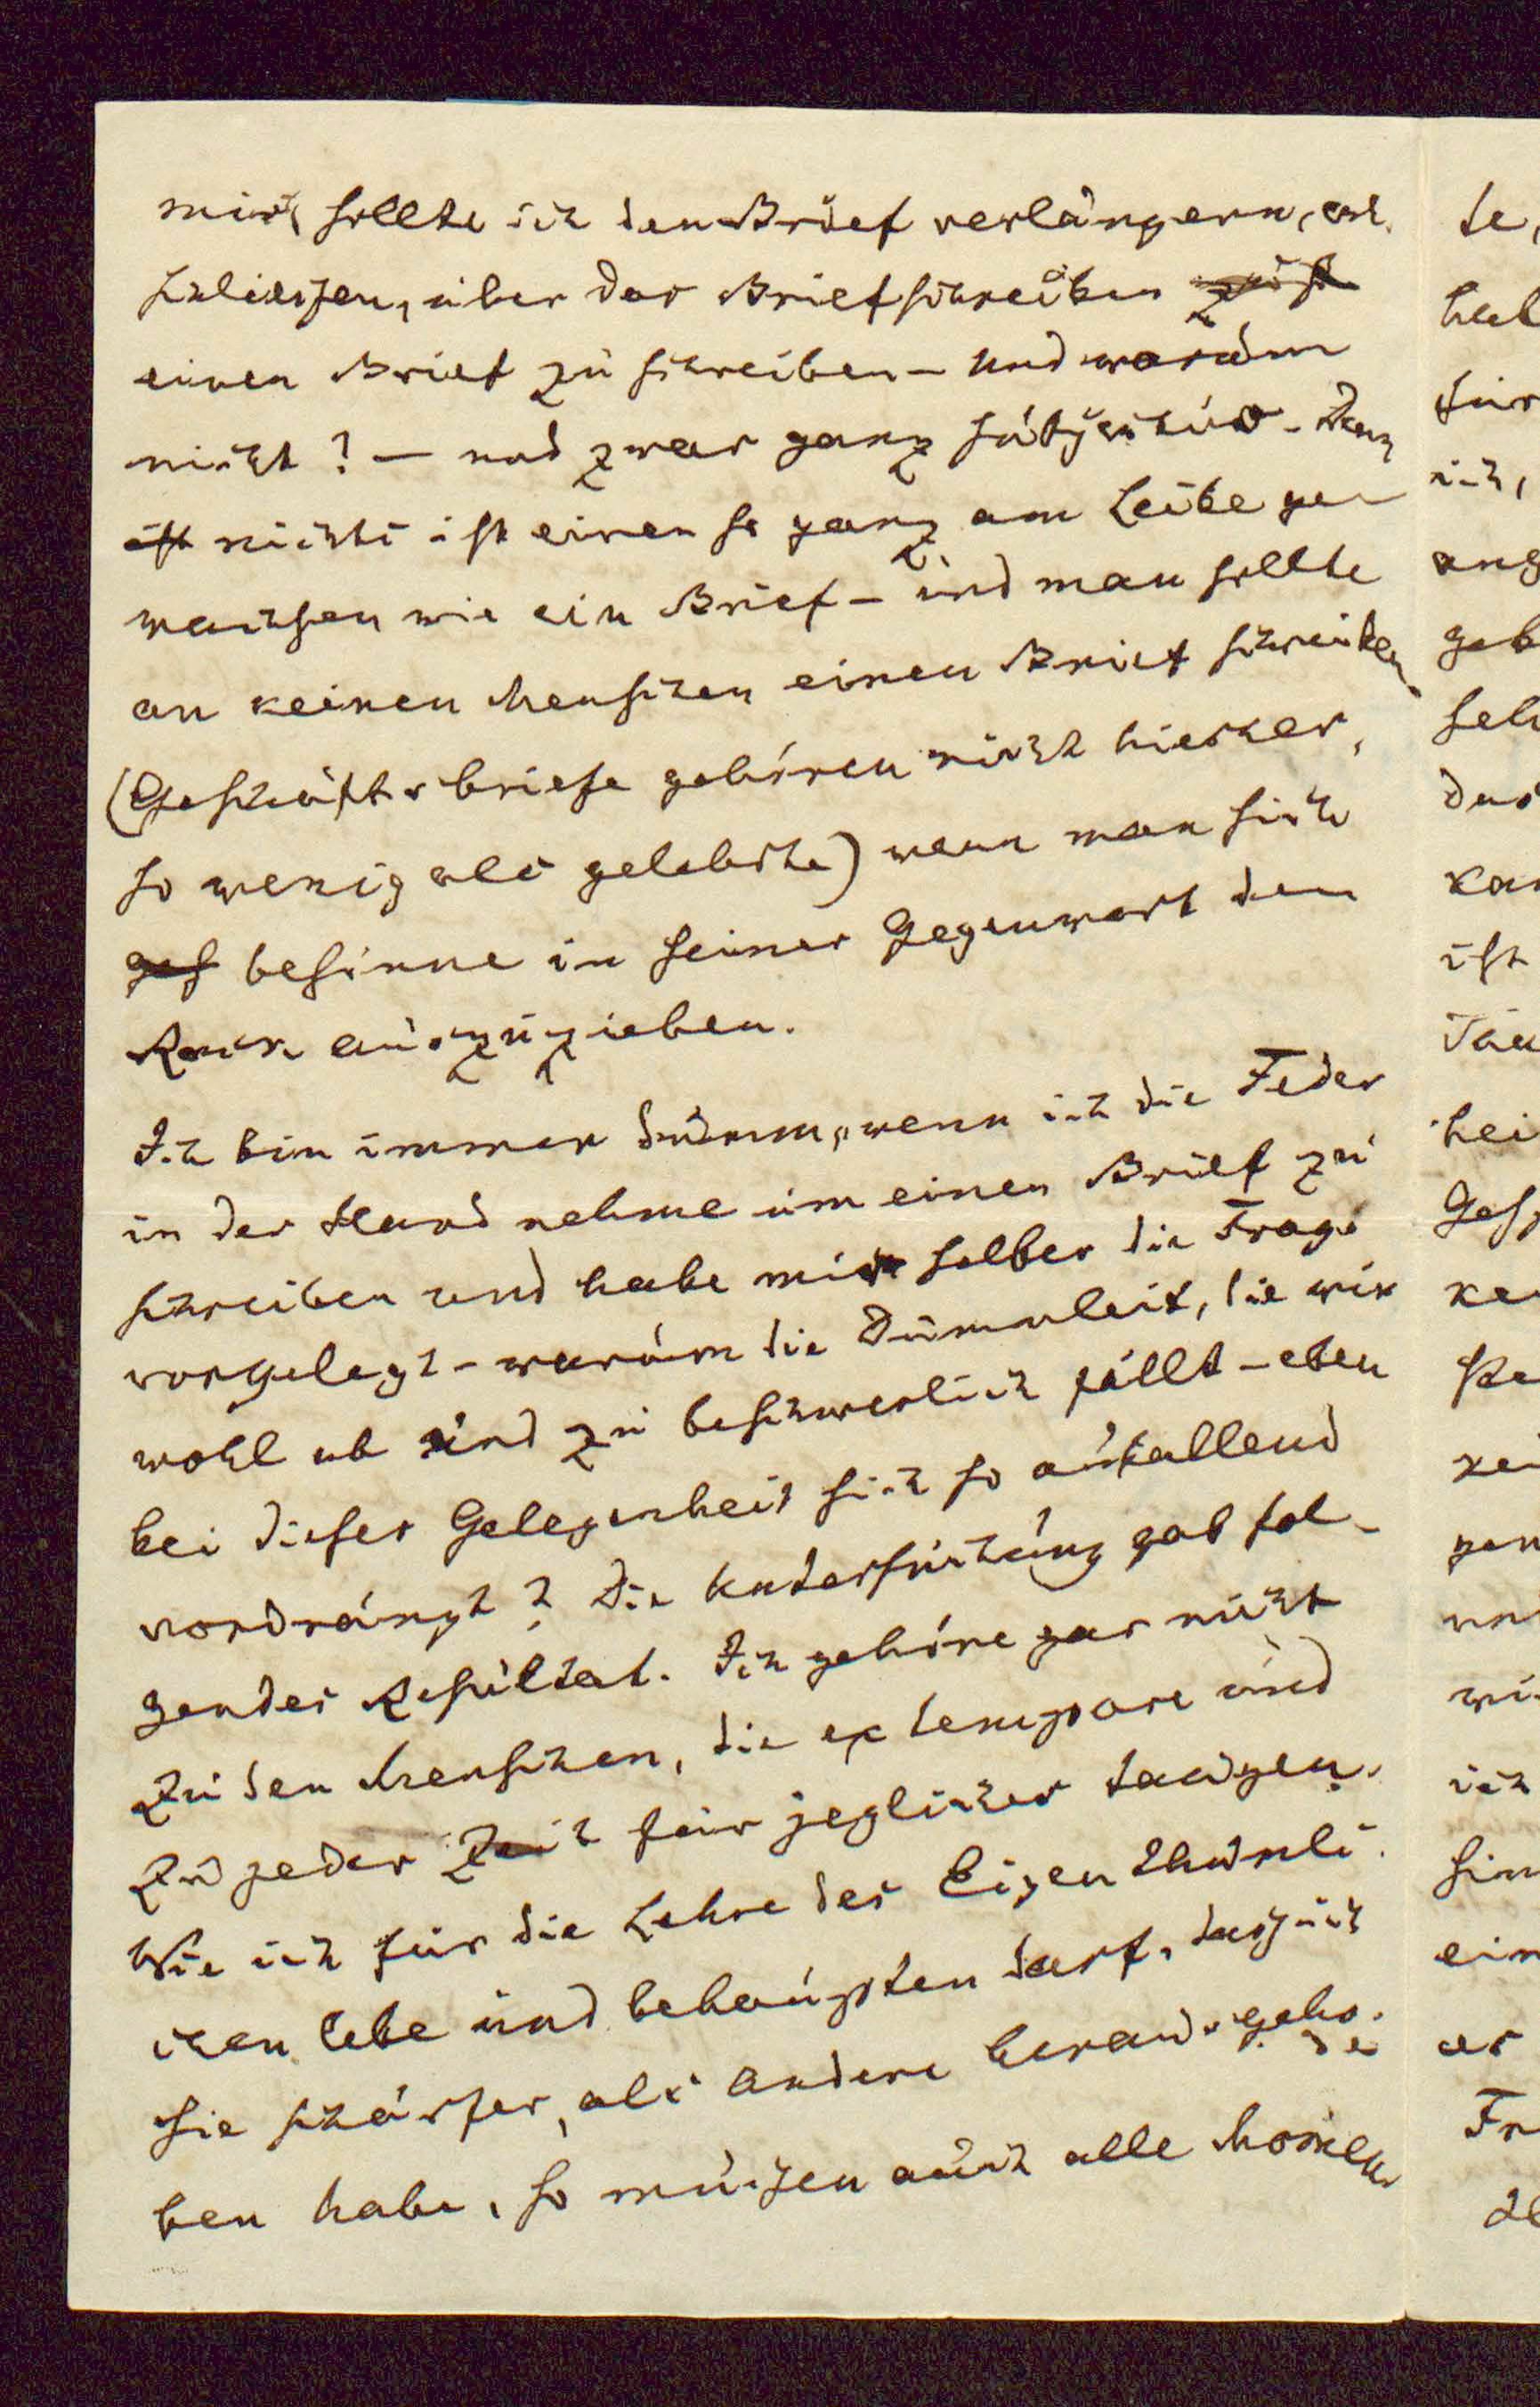 mich, sollte ich den Brief verlängern, ent
schliessen, über das Briefschreiben
einen Brief zu schreiben – und warum
nicht? – und zwar ganz subjectiv – Denn
ist nichts ist einen so ganz am Leibe ge
wachsen wie ein Brief – und man sollte
an keinen Menschen einen Brief schreiben
(Geschäftsbriefe gehören nicht hierher,
so wenig als gelehrte) wenn man sich
ges besinne in seiner Gegenwart den
Rock auszuziehen.
Ich bin immer dumm, wenn ich die Feder
in der Hand nehme um einen Brief zu
schreiben und habe mir selber die Frage
vorgelegt – warum die Dummheit, die wir
wohl ab und zu beschwerlich fällt – eben
bei dieser Gelegenheit sich so aufallend
vordrängt? Die Untersuchung gab fol-
gendes Resultat. Ich gehöre gar nicht
zu den Menschen, die ex tempore und
zu jeder Zeit für jegliches taugen.
Wie ich für die Lehre des Eigenthümli
chen lebe und behaupten darf, dass ich
sie schärfer, als andere herausgeho.
ben habe, so müssen auch alle
te,
hab
für
ich,
ang
geb
seh
das
kan
ist
Täu
hei
Gesp
ke
ste
kei
gen
und
wi
ich
sin
ein
er
Fr